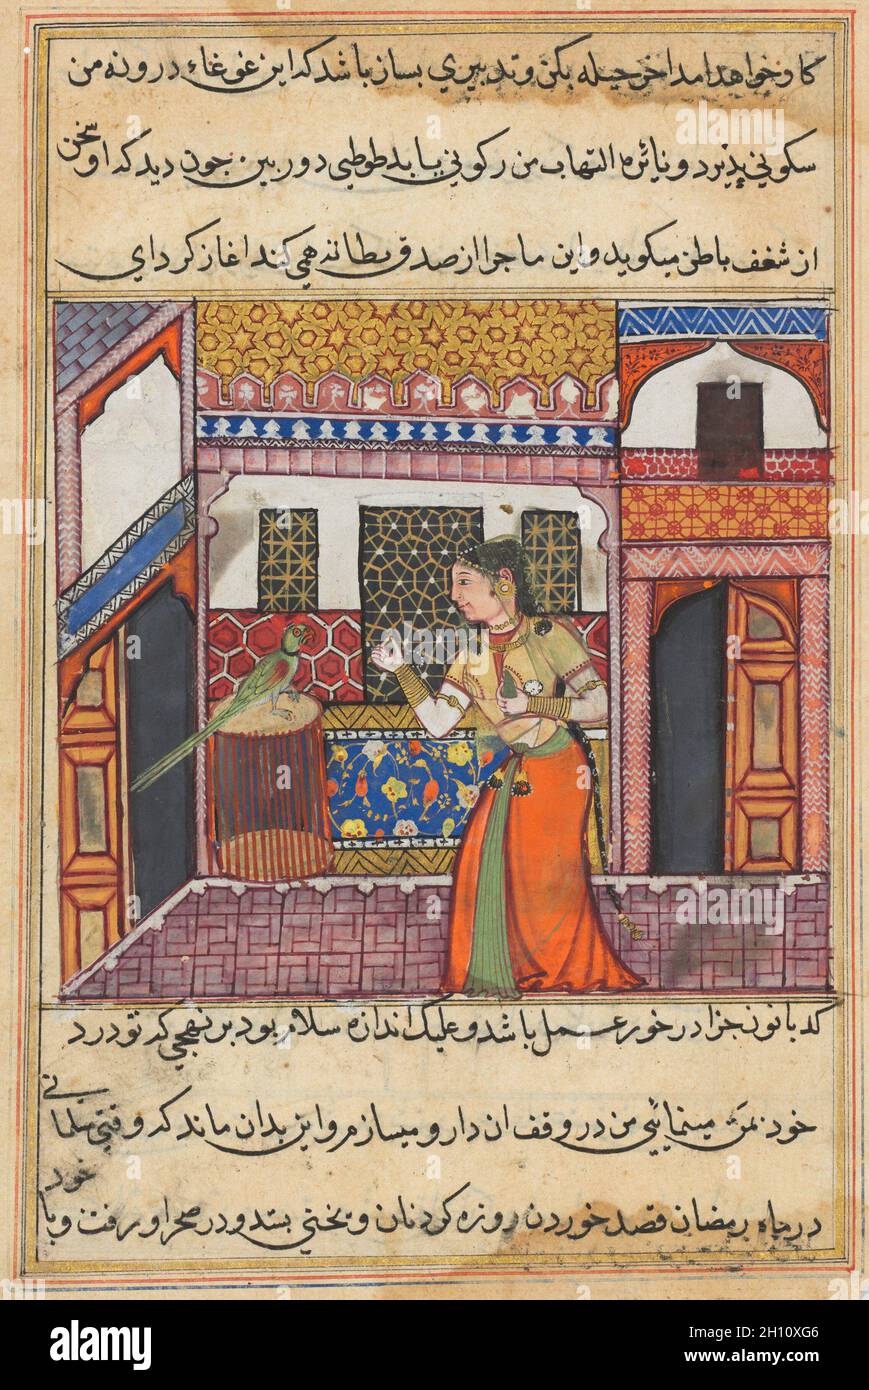 کار خواهد امد اخر حیله بکن و تدبیری بساز باشد که این غوغاء درونه من
سکونی پذیرد و نائره التهاب من رکونی یابد طوطی دوربین چون دید که او سخن
از شغف باطن میکوید و این ماجرا از صدق بطانه همی کند اغاز کرد ای
کدبانو جزا در خور عمل باشد و علیک اندازه سلام بود بر نهجی که تو درد
خود بمن مینمائی من در وقف ان دارو میسازم و این بدان ماند که وقتی سلمانی
در ماه رمضان قصد خوردن روزه کرد نان و بختی بستد و در صحرا رفت و با خود
alamy
alamy
Image ID: 2H10XG6
www.alamy.com